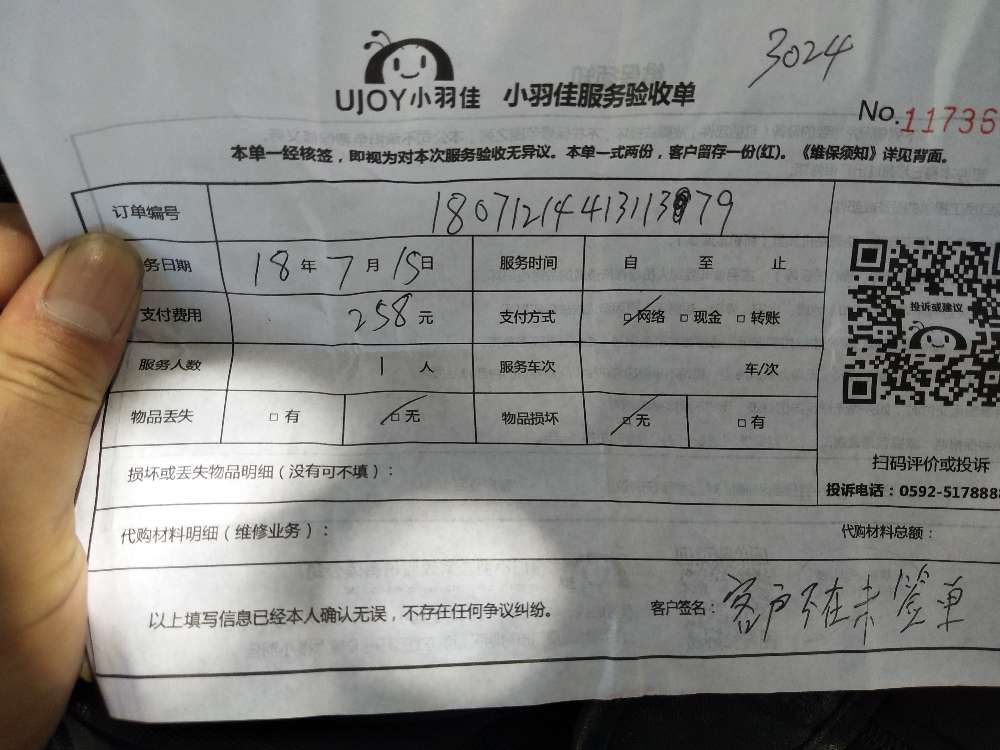 3024
UJOY小羽佳 小羽佳服务验收单
No.11736
本单一经核签，即视为对本次服务验收无异议。本单一式两份，客户留存一份(红)。《维保须知》详见背面。
订单编号 18071214413113979
务日期 18年7月15日 服务时间 自 至 止
支付费用 258元 支付方式 □网络 □现金 □转账
投诉或建议
服务人数 1人 服务车次 车/次
物品丢失 □有 □无 物品损坏 □无 □有
扫码评价或投诉
损坏或丢失物品明细（没有可不填）：
投诉电话：0592-5178888
代购材料明细（维修业务）： 代购材料总额：
以上填写信息已经本人确认无误，不存在任何争议纠纷。 客户签名：客户不在未签单